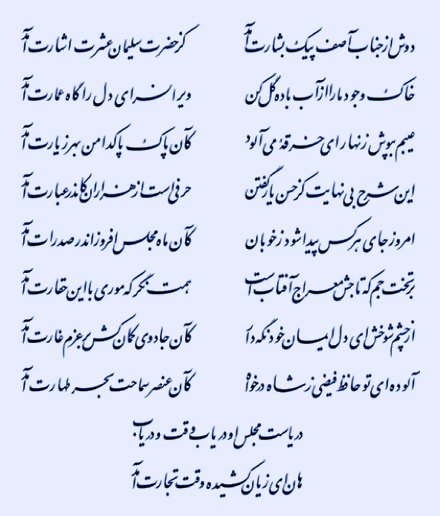 دوش از جناب آصف پیک بشارت آمد کز حضرت سلیمان عشرت اشارت آمد
خاک وجود ما را از آب باده گل کن ویران سرای دل را گاه عمارت آمد
عیبم بپوش زنهار ای خرقهٔ می آلود کآن پاک پاکدامن بهر زیارت آمد
این شرح بی نهایت کز حسن یار گفتن حرفی است از هزاران کاندر عبارت آمد
امروز جای هر کس پیدا شود ز خوبان کآن ماه مجلس افروز اندر صدارت آمد
بر تخت جم که تاجش معراج آفتاب است همت نگر که موری با این حقارت آمد
از چشم شوخش ای دل ایمان خود نگه دار کآن جادوی کمان کش بر عزم غارت آمد
آلوده‌ای تو حافظ فیضی ز شاه درخواه کآن عنصر سماحت بحر طهارت آمد
دریاست مجلس او دریاب وقت و دریاب
هان ای زیان کشیده وقت تجارت آمد